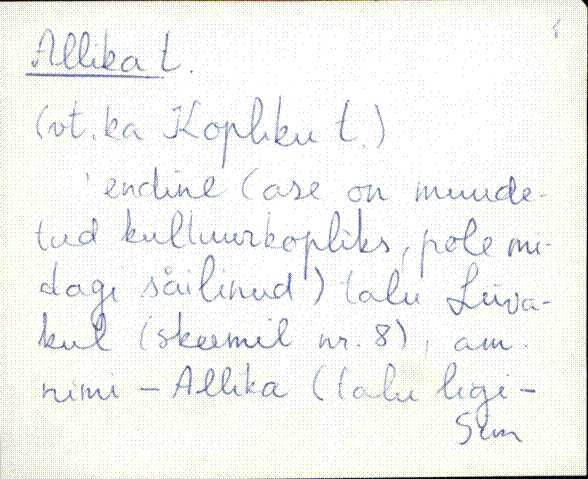 Allika t.
(vt. ka Kopliku t.)
'endine (ase on muude-
tud kultuurkopliks, pole mi-
dagi säilinud) talu Liiva-
kul (skeemil nr. 8), am.
nimi – Allika (talu ligi-